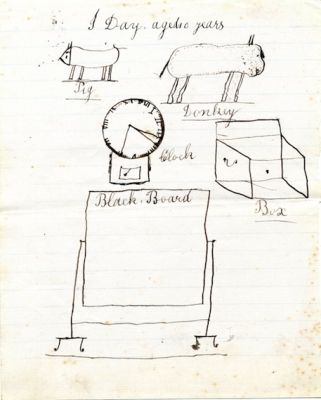 I Day. aged 10 years
Pig
Donkey
Clock
Black. Board
Box